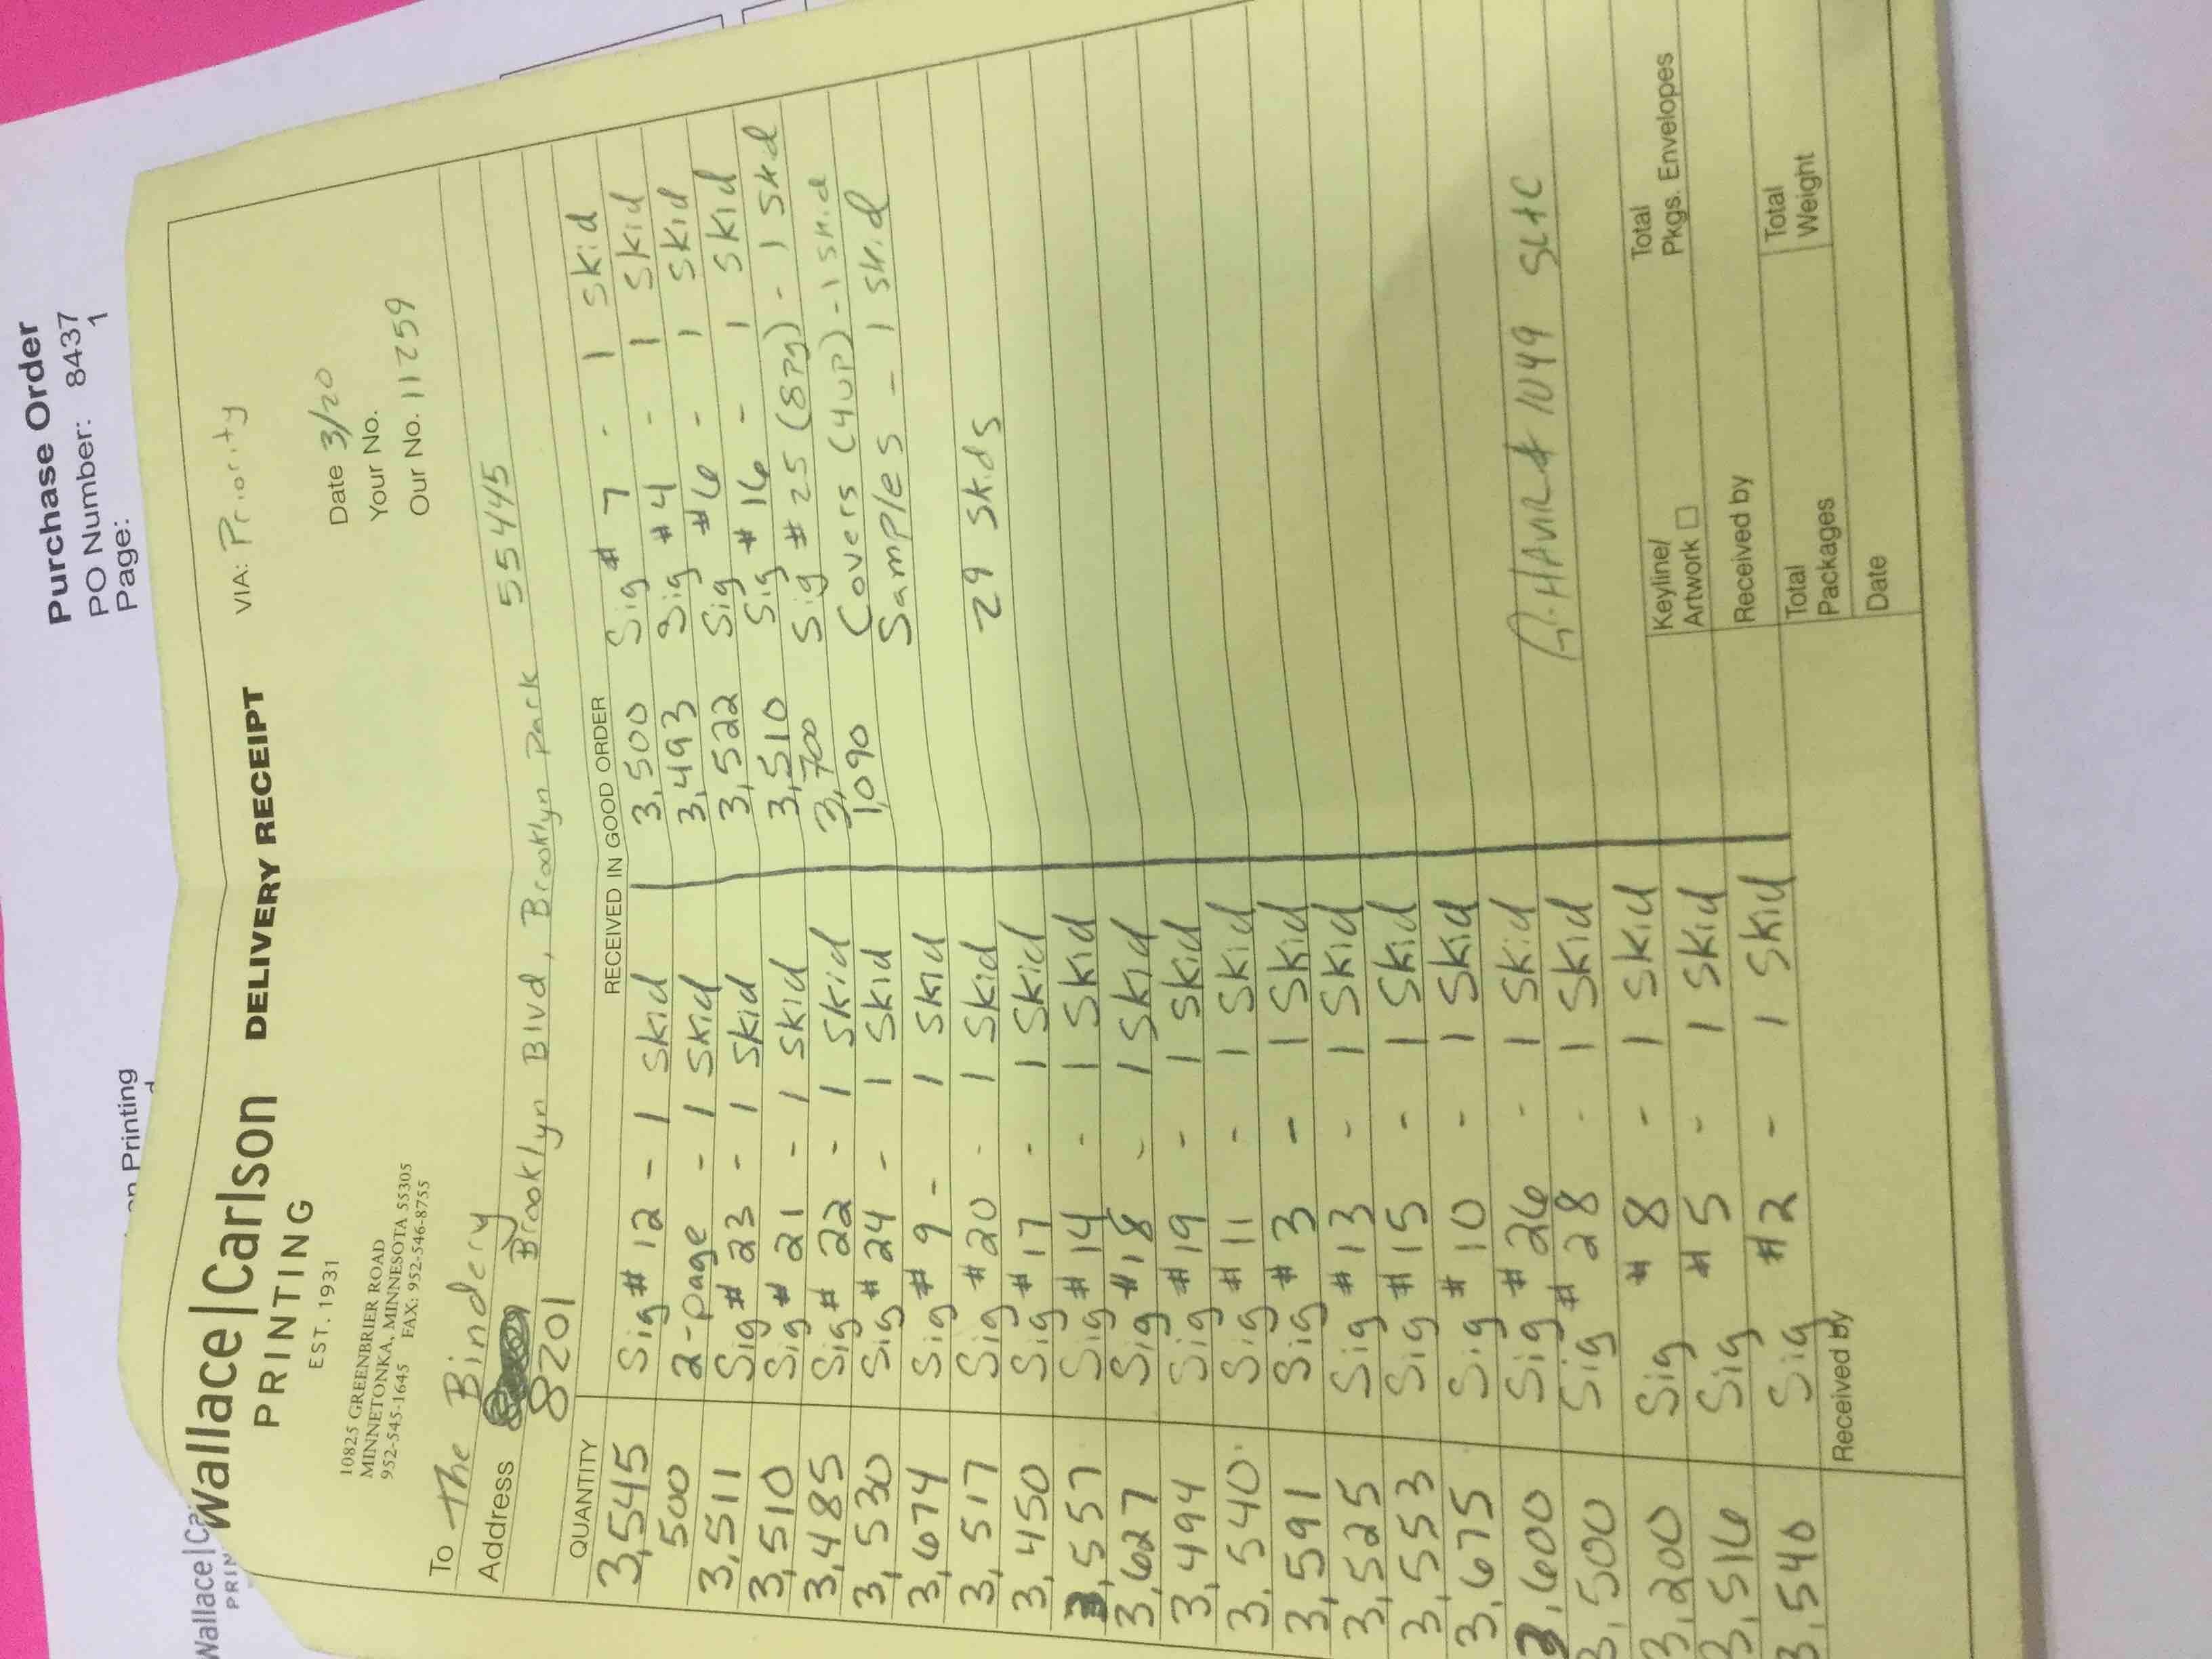 Purchase Order
PO Number: 8437
Page: 1
Printing
Wallace|Ca
PRIN
Wallace|Carlson
PRINTING
EST. 1931
DELIVERY RECEIPT
VIA: Priority
10825 GREENBRIER ROAD
MINNETONKA, MINNESOTA 55305
952-545-1645 FAX: 952-546-8755
Date 3/20
Your No.
Our No. 11259
To The Bindery
Address Brooklyn Blvd, Brooklyn Park 55445
8201
QUANTITY
RECEIVED IN GOOD ORDER
3,545 Sig # 12 - 1 Skid
500 2-page - 1 Skid
3,511 Sig # 23 - 1 Skid
3,510 Sig # 21 - 1 Skid
3,485 Sig # 22 - 1 Skid
3,530 Sig # 24 - 1 Skid
3,674 Sig # 9 - 1 Skid
3,517 Sig # 20 - 1 Skid
3,450 Sig # 17 - 1 Skid
3,557 Sig # 14 - 1 Skid
3,627 Sig # 18 - 1 Skid
3,494 Sig # 19 - 1 Skid
3,540 Sig # 11 - 1 Skid
3,591 Sig # 3 - 1 Skid
3,525 Sig # 13 - 1 Skid
3,553 Sig # 15 - 1 Skid
3,675 Sig # 10 - 1 Skid
3,600 Sig # 26 - 1 Skid
3,500 Sig # 28 - 1 Skid
3,200 Sig # 8 - 1 Skid
3,516 Sig # 5 - 1 Skid
3,540 Sig # 2 - 1 Skid
3,500 Sig # 7 - 1 Skid
3,493 Sig # 4 - 1 Skid
3,522 Sig # 6 - 1 Skid
3,510 Sig # 16 - 1 Skid
3,700 Sig # 25 (8pg) - 1 Skid
1,090 Covers (4up) - 1 Skid
Samples - 1 Skid
29 Skids
1049
Received by
Keyline/
Artwork
Total
Pkgs. Envelopes
Received by
Total
Packages
Total
Weight
Date